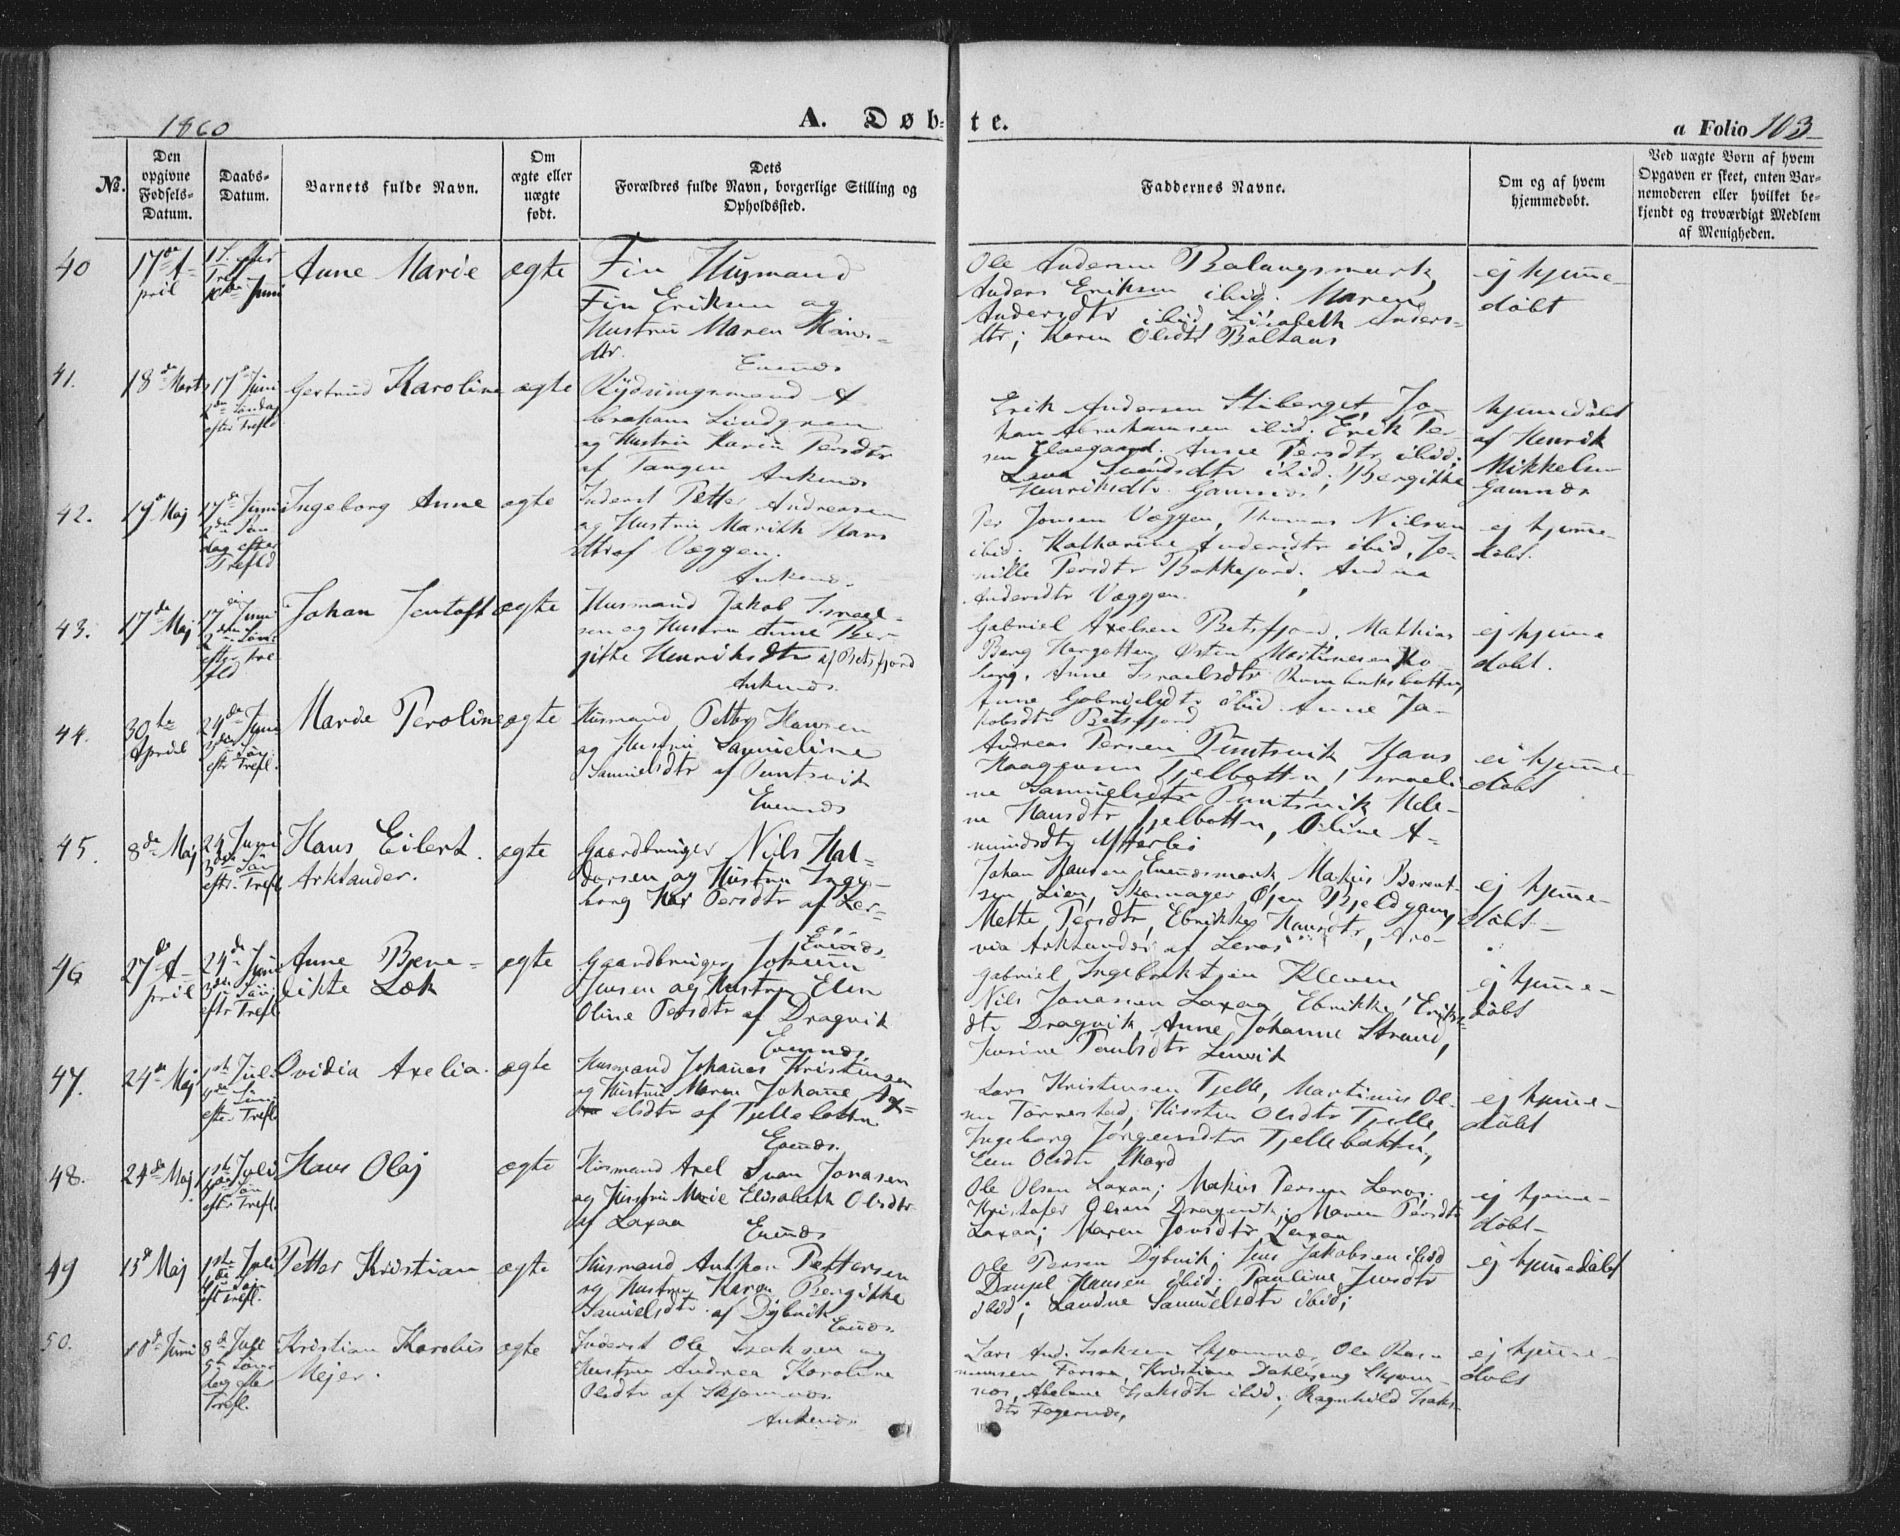 1860
A. Døb-te.
a Folio 103
No.
Den opgivne Fødsels-Datum.
Daabs-Datum.
Barnets fulde Navn.
Om ægte eller uægte født.
Dets Forældres fulde Navn, borgerlige Stilling og Opholdssted.
Faddernes Navne.
Om og af hvem hjemmedøbt.
Ved uægte Børn af hvem Opgaven er skeet, enten Barnemoderen eller hvilket bekjendt og troværdigt Medlem af Menigheden.
40
17de A-
pril
Anne Marie
ægte
Fin Husmand
Fin Eriksen og
Hustru Maren
dtr.
Evenæs
Ole Andersen Balangsmark,
Anders Eriksen ibid. Maren
Andersdtr ibid, Lisabeth Anders-
dtr; Karen Olsdtr
ej hjemme-
døbt
41.
18de Marts
17de Juni
2den Søndag
efter Trefld
Gertrud Karoline
ægte
Rydningsmand A-
braham Lindgren
og Hustru Karen Persdtr
af Tangen
Ankenæs
Erik Andersen Stiberget, Jo-
han Abrahamsen ibid. Erik Per-
sen Elvegaard. Anne Persdtr ibid;
Lena ibid; Bergitthe
Henriksdtr. Gamnæs
hjemmedøbt
af Henrik
Mikkelsen
Gamnæs
42.
19de Maj
17de Juni
2den Søn
dag efter
Trefld
Ingeborg Anne
ægte
Inderst Petter Andreasen
og Hustru Marith Hans
dtr af Væggen.
Ankenæs.
Per Jonsen Væggen, Thomas Nilsen
ibid. Katharina Andersdtr ibid, Jo-
Persdtr Bakkejord. Andrea
Andersdtr Væggen.
ej hjemme-
døbt.
43.
17de Maj
17de Juni
2den Søn-
efter Tre
fld
Johan Jentoft
ægte
Husmand Jakob Israel-
sen og Hustru Anne Ber-
gitte Henriksdtr af Betsfjord
Ankenæs.
Gabriel Axelsen Betsfjord. Mathias
Berg Hergotten, Østen Martinesen
berg, Anne Israelsdtr
Anne Gabrielsdtr ibid. Anne Ja-
kobsdtr Betsfjord
ej hjemme
døbt.
44.
30te
April
24de Juni
3die Søn
eftr Trefl.
Marie Peroline
ægte
Husmand Petter Hansen
og Hustru Samueline
Samuelsdtr af Tuntsvik
Evenæs
Andreas Persen Tuntsvik Hans
Haagensen Tjelbotten, Israeli-
ne Samuelsdtr Tuntsvik Hele-
ne Hansdtr Tjelbotten, Oline A-
mundsdtr
ej hjemme-
døbt
45.
8de Maj
24 Juni
3die Søn
eftr. Trefl
Hans Eilert
Arktander.
ægte
Gaardbruger Nils Hal-
dorsen og Hustru Inge-
borg Persdtr af Ler-
Evenæs.
Johan Hansen Evenesmark Makius Berent-
sen Lien, Bjeldgam,
Mette Persdtr, Ebrikke Hansdtr,
via Arktander af
ej hjemme-
døbt-
46
27de A-
pril
24de Juni
3die Søn
eftr Trefl
Anne Bene-
dikte Lok
ægte
Gaardbruger Johan
Jensen og Hustru Elen
Oline Persdtr af Dragvik
Evenæs.
Gabriel Ingebriktsen Kleven
Nils Jonassen Laxaa Ebrikke Eriks-
dtr Dragvik Anne Johanne Strand,
Paulsdtr
ej hjemme-
døbt
47.
24de Maj
1ste Juli
4de Søn
efter Trefl
Ovidia Axelia.
ægte
Husmand Johanes Kristensen
og Hustru Maren Johane Ax-
elsdtr af Tjellebotten
Evenæs.
Lars Kristensen Tjelle, Martinus Ol-
sen Tørrestad, Kirsten Olsdtr Tjelle,
Ingeborg Jørgensdtr Tjellebotten,
Elen Olsdtr Skard
ej hjemme-
døbt
48.
24de Maj
1ste Juli
4de Søn
efter Trefl.
Hans Olaj
ægte
Husmand Axel Ivan Jonasen
og Hustru Marie Elisabeth Olsdtr
af Laxaa
Evenæs
Ole Olsen Laxaa; Makius Persen
Kristofer Olsen Dragvik; Maren Persdtr
Laxaa; Maren Jonsdtr Laxaa
ej hjemme-
døbt-
49
15de Maj
1ste Juli
4de Søn
eft Trefl.
Petter Kristian
ægte
Husmand Anthon Pettersen
og Hustru Karen Bergitte
Samuelsdtr af Dybvik
Evenæs.
Ole Persen Dybvik; Jens Jakobsen ibid
Daniel Hansen ibid; Pauline Jensdtr
ibid; Samuelsdtr ibid;
ej hjemmedøbt
50.
18de Juni
8de Juli
5te Søn-
dag efter
Trefl.
Kristian Karolius
Mejer.
ægte
Inderst Ole Isaksen og
Hustru Andrea Karoline
Olsdtr af Skjomnæs
Ankenæs.
Lars And. Isaksen Skjomnæs, Ole Ras-
mussen Forsaa, Kristian Dahl Skjom-
næs, Abelone Isaksdtr ibid; Ragnhild Isaks-
dtr Fagernæs,
ej hjemme-
døbt